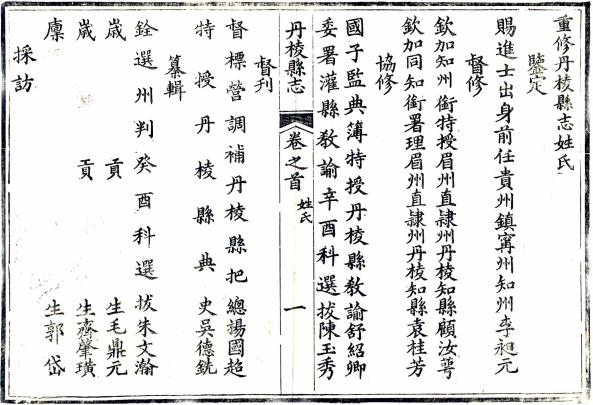 重修丹棱縣志姓氏
鑒定
賜進士出身前任貴州鎮寗州知州李昶元
督修
欽加知州銜特授眉州直隸州丹棱知縣顧汝萼
欽加同知銜署理眉州直隸州丹棱知縣袁桂芳
協修
國子監典簿特授丹棱縣敎諭舒紹卿
委署灌縣敎諭辛酉科選拔陳玉秀
丹棱縣志
卷之首
姓氏
一
督刋
督標營調補丹棱縣把總謁國超
特授丹棱縣典史吳德銑
纂輯
銓選州判癸酉科選拔朱文瀚
歲貢生毛鼎元
歲貢生齊肇璜
廩生郭岱
採訪